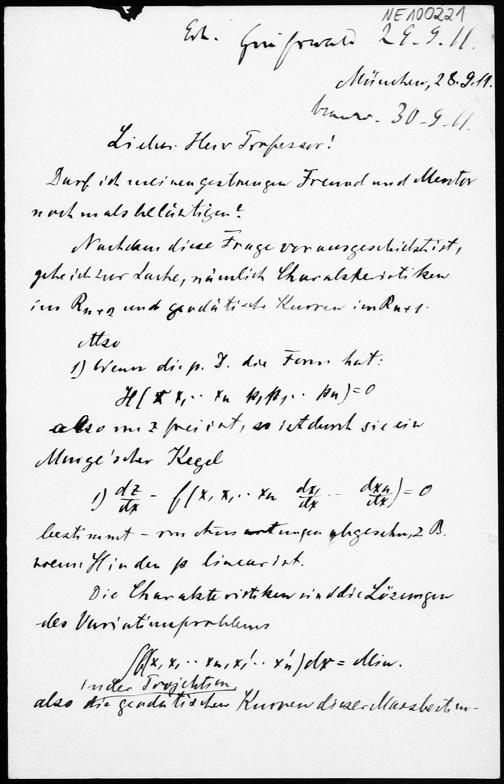 NE100221
Erh. Greifswald 29.9.11.
München, 28.9.11.
30.9.11.
Lieber Herr Professor!
Darf ich meinen gestrengen Freund und Mentor
nochmals belästigen?
Nachdem diese Frage vorausgeschickt ist,
gehe ich zur Sache, nämlich Charakteristiken
im Rn+2 und geodätische Kurven im Rn+1.
Also
1) Wenn die p. D. die Form hat:
H(x x1 ·· xn p, p1, ·· pn) = 0
also von z frei ist, so ist durch sie ein
Monge'scher Kegel
1) dz/dx - f(x, x1 ·· xn dx1/dx ·· dxn/dx) = 0
bestimmt - von Ausartungen abgesehen, z B.
wenn H in den p linear ist.
Die Charakteristiken sind die Lösungen
des Variationsproblems
∫f(x, x1 ·· xn, x1' ·· xn') dx = Min.
in der Projektion
also die geodätischen Kurven dieser Massbestim-